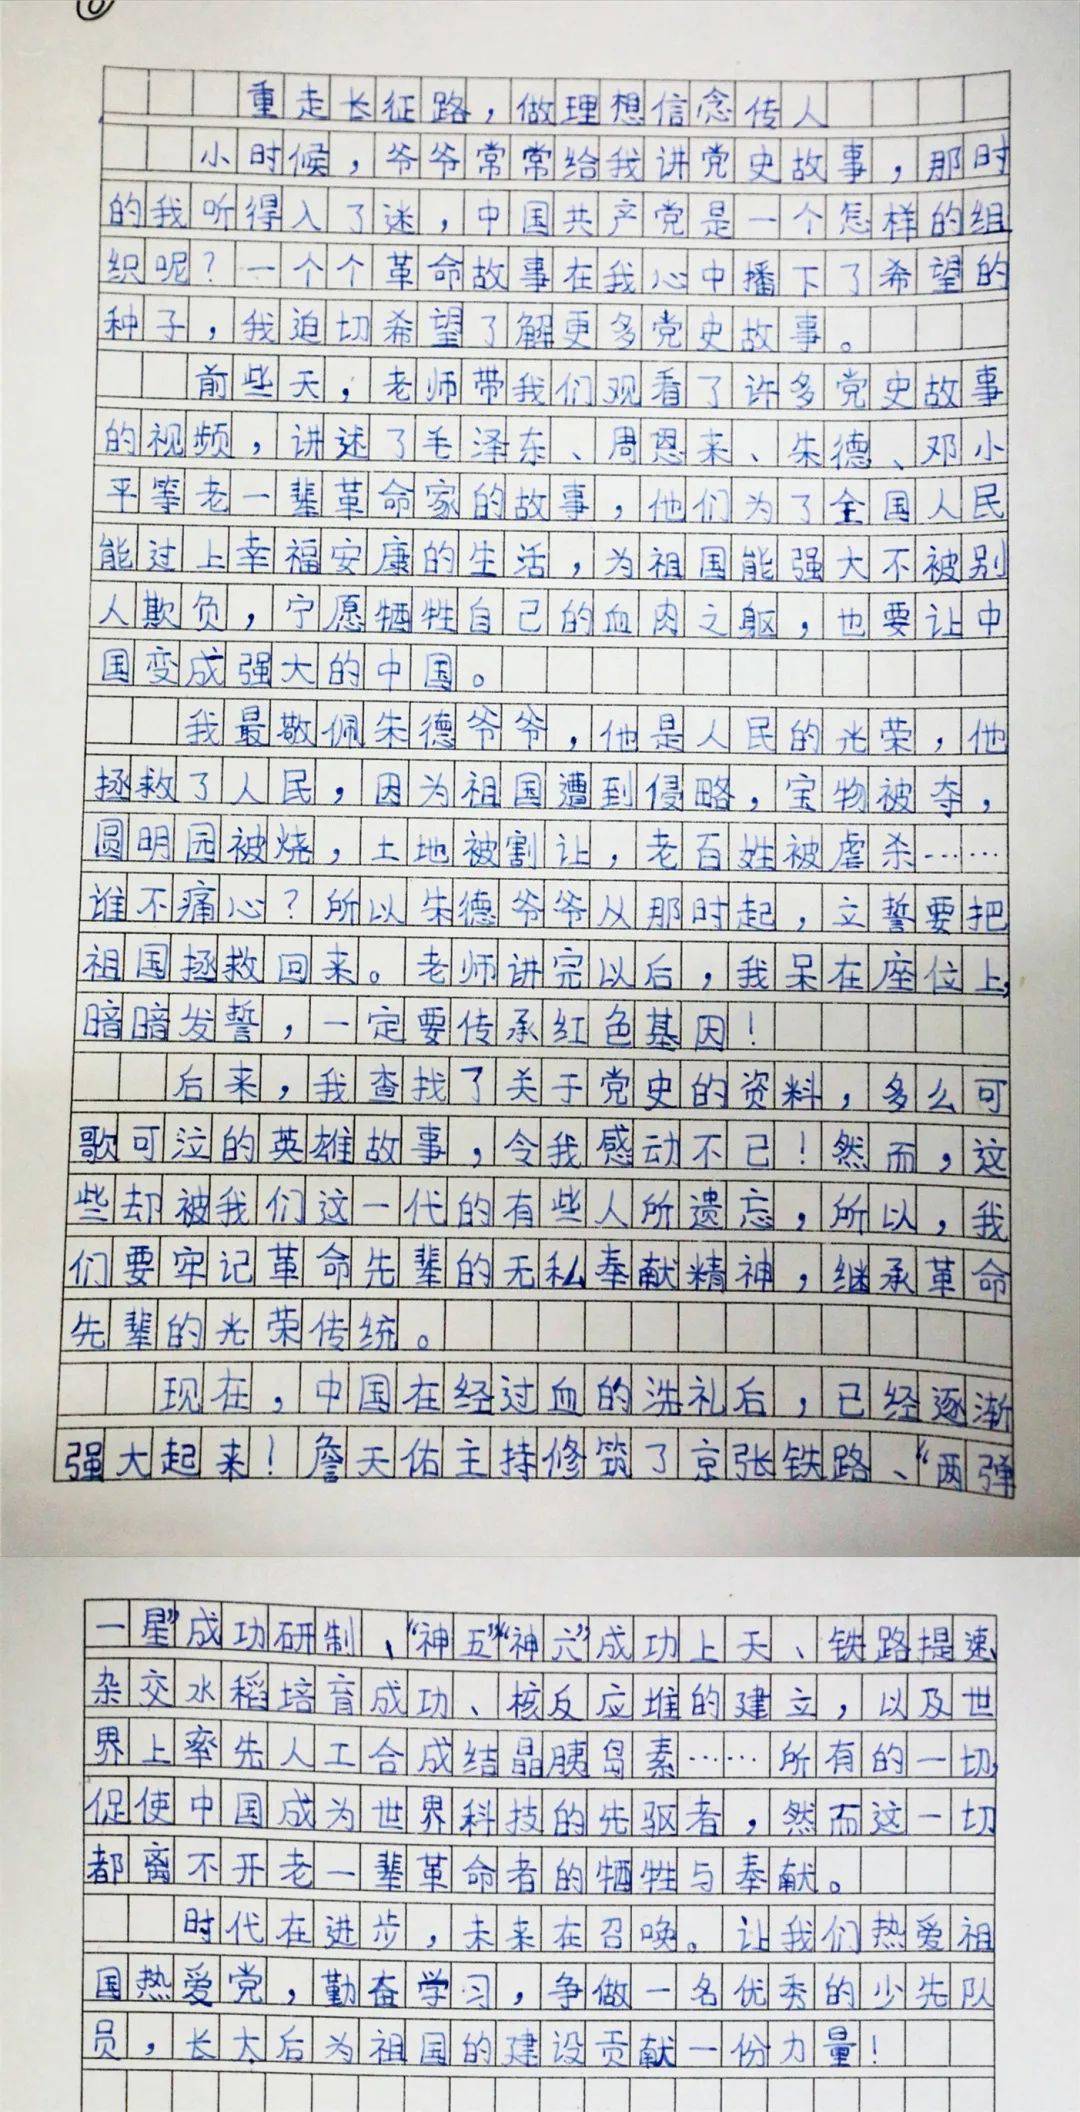 ⑥
重走长征路，做理想信念传人
小时候，爷爷常常给我讲党史故事，那时
的我听得入了迷，中国共产党是一个怎样的组
织呢？一个个革命故事在我心中播下了希望的
种子，我迫切希望了解更多党史故事。
前些天，老师带我们观看了许多党史故事
的视频，讲述了毛泽东、周恩来、朱德、邓小
平等老一辈革命家的故事，他们为了全国人民
能过上幸福安康的生活，为祖国能强大不被别
人欺负，宁愿牺牲自己的血肉之躯，也要让中
国变成强大的中国。
我最敬佩朱德爷爷，他是人民的光荣，他
拯救了人民，因为祖国遭到侵略，宝物被夺，
圆明园被烧，土地被割让，老百姓被虐杀……
谁不痛心？所以朱德爷爷从那时起，立誓要把
祖国拯救回来。老师讲完以后，我呆在座位上，
暗暗发誓，一定要传承红色基因！
后来，我查找了关于党史的资料，多么可
歌可泣的英雄故事，令我感动不已！然而，这
些却被我们这一代的有些人所遗忘，所以，我
们要牢记革命先辈的无私奉献精神，继承革命
先辈的光荣传统。
现在，中国在经过血的洗礼后，已经逐渐
强大起来！詹天佑主持修筑了京张铁路、“两弹
一星”成功研制、“神五”“神六”成功上天、铁路提速、
杂交水稻培育成功、核反应堆的建立，以及世
界上率先人工合成结晶胰岛素……所有的一切，
促使中国成为世界科技的先驱者，然而这一切
都离不开老一辈革命者的牺牲与奉献。
时代在进步，未来在召唤。让我们热爱祖
国热爱党，勤奋学习，争做一名优秀的少先队
员，长大后为祖国的建设贡献一份力量！